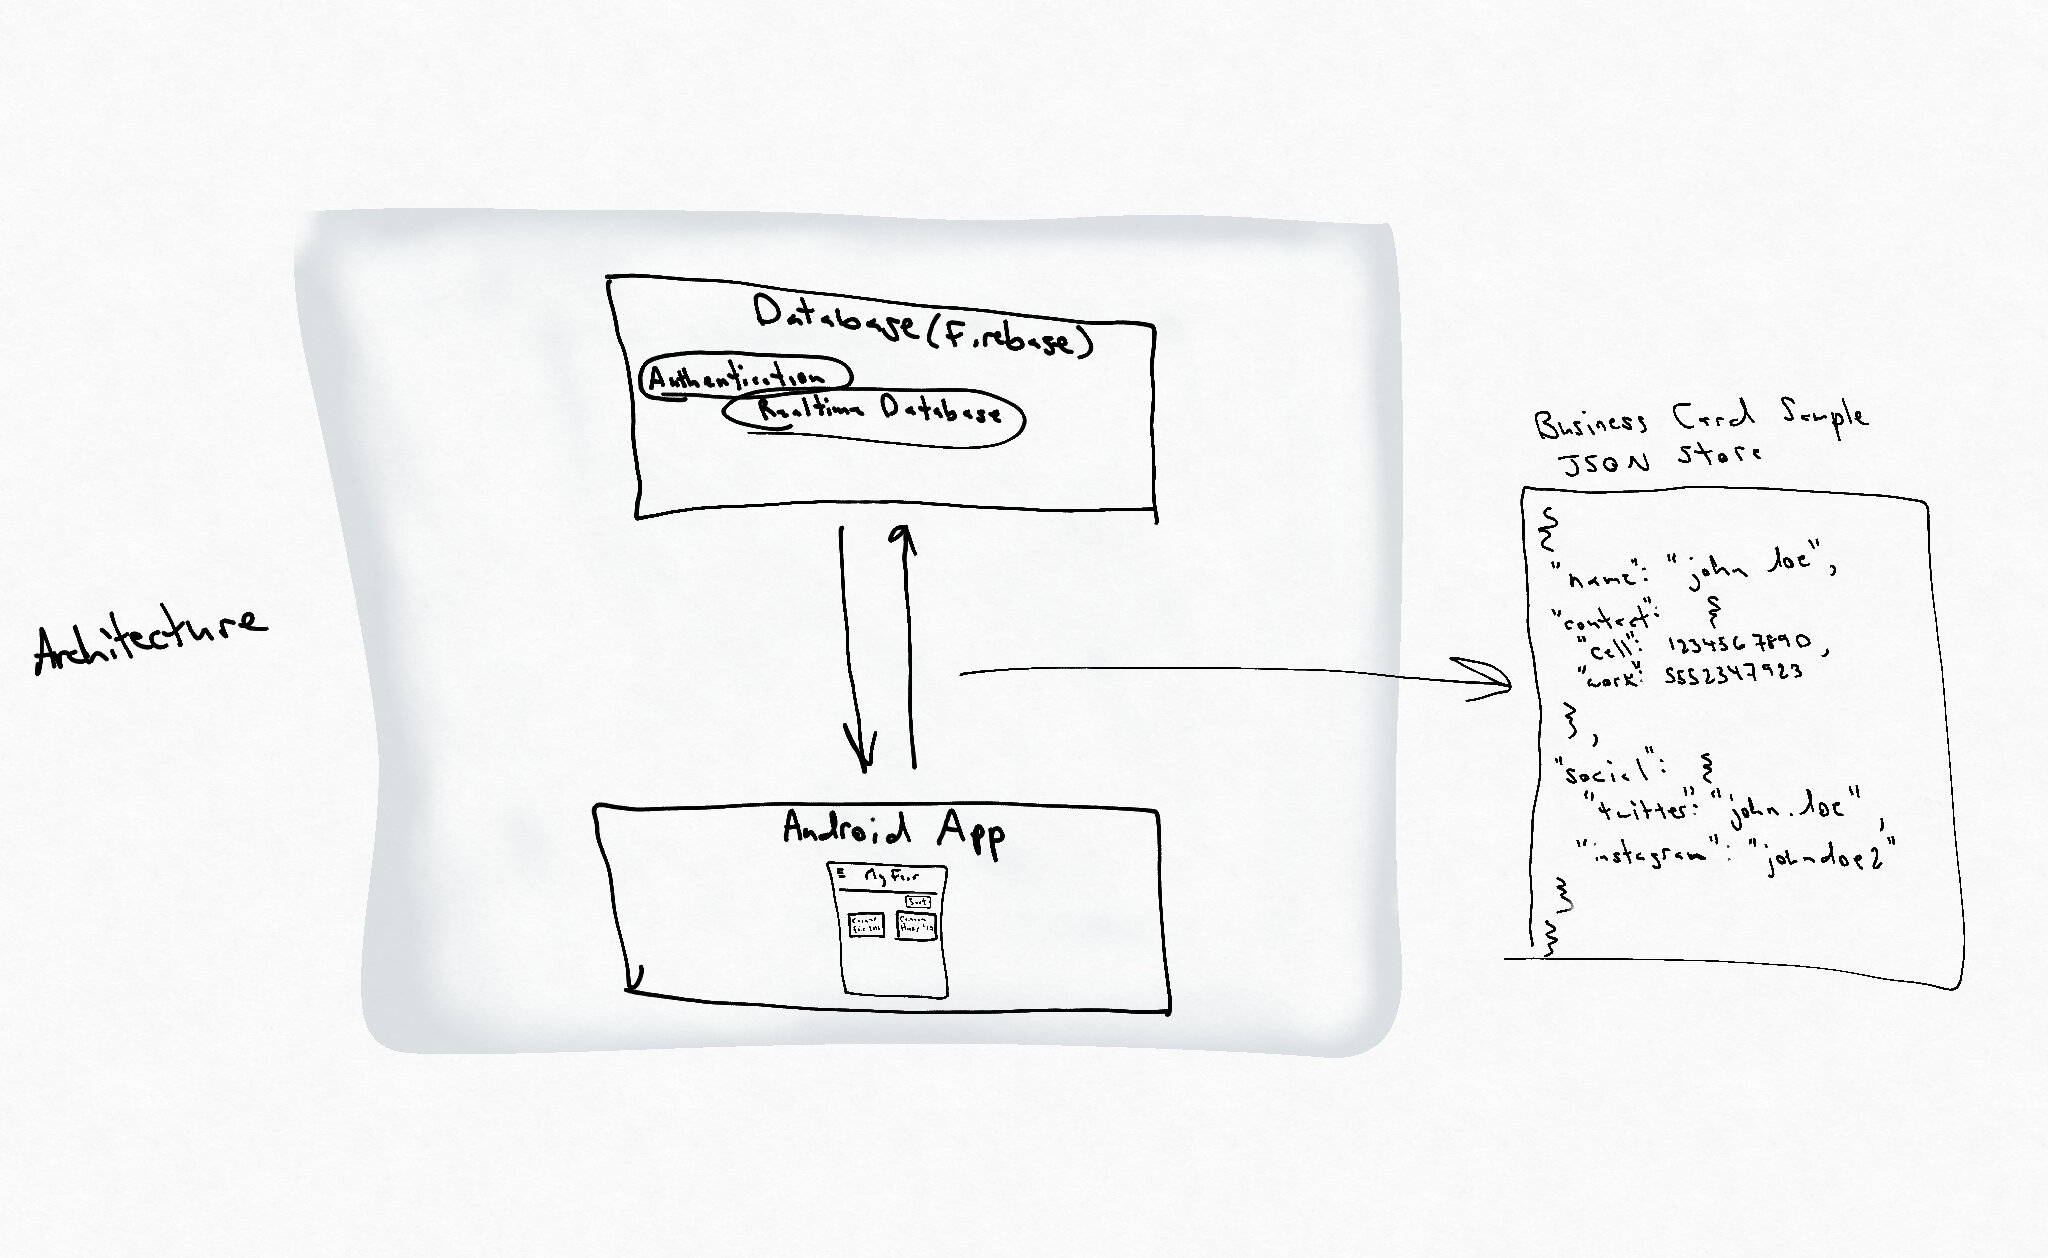 Architecture
Database (Firebase)
Authentication
Realtime Database
Android App
Sort
Business Card Sample
JSON Store
{
"name": "john doe",
"contact": {
"cell": 1234567890,
"work": 5552347923
},
"social": {
"twitter": "john.doe",
"instagram": "johndoe2"
}
}